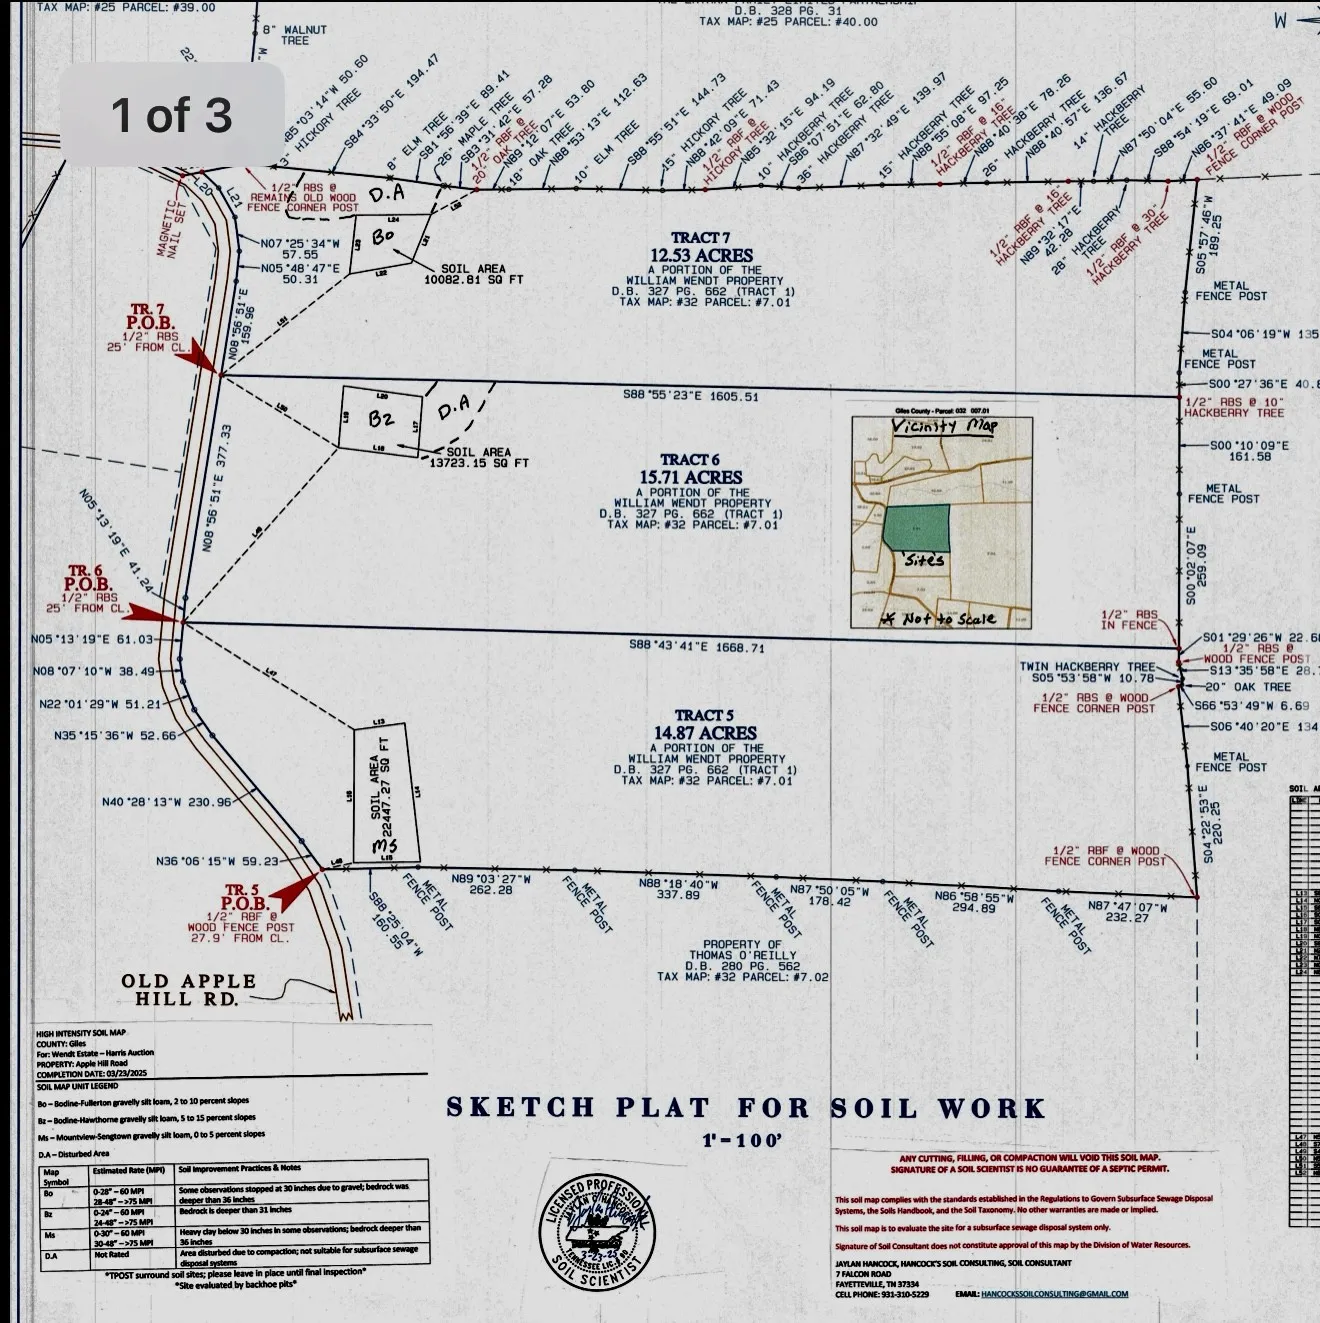 TAX MAP: #25 PARCEL: #39.00
D.B. 328 PG. 31
TAX MAP: #25 PARCEL: #40.00
W
8" WALNUT
TREE
1 of 3
S85°03'14"W 50.60
HICKORY TREE
S84°33'50"E 194.47
8" ELM TREE
S81°56'39"E 89.41
26" MAPLE TREE
S83°31'42"E 57.28
1/2" RBF @
20" OAK TREE
N89°12'07"E 53.80
18" OAK TREE
N88°53'13"E 112.63
10" ELM TREE
S88°55'51"E 144.73
15" HICKORY TREE
N88°42'09"E 71.43
1/2" RBF @
HICKORY TREE
N88°32'15"E 94.19
10" HACKBERRY TREE
S86°07'51"E 62.80
36" HACKBERRY TREE
N87°32'49"E 139.97
15" HACKBERRY TREE
N88°55'08"E 97.25
1/2" RBF @ 16"
HACKBERRY TREE
N88°40'38"E 78.26
26" HACKBERRY TREE
N88°40'57"E 136.67
14" HACKBERRY
TREE
N87°50'04"E 55.60
S88°54'19"E 69.01
N86°37'41"E 49.09
1/2" RBF @ WOOD
FENCE CORNER POST
L20
L21
MAGNETIC
NAIL SET
1/2" RBS @
REMAINS OLD WOOD
FENCE CORNER POST
D.A
L24
Bo
L22
SOIL AREA
10082.81 SQ FT
N07°25'34"W
57.55
N05°48'47"E
50.31
N08°56'51"E
159.96
TRACT 7
12.53 ACRES
A PORTION OF THE
WILLIAM WENDT PROPERTY
D.B. 327 PG. 662 (TRACT 1)
TAX MAP: #32 PARCEL: #7.01
1/2" RBF @ 16"
HACKBERRY TREE
N89°32'17"E
42.28
28" HACKBERRY
TREE
1/2" RBF @ 30"
HACKBERRY TREE
S05°57'46"W
189.25
METAL
FENCE POST
S04°06'19"W 135
METAL
FENCE POST
S00°27'36"E 40.8
1/2" RBS @ 10"
HACKBERRY TREE
TR. 7
P.O.B.
1/2" RBS
25' FROM CL.
S88°55'23"E 1605.51
L20
L19
Bz
L17
L18
D.A
SOIL AREA
13723.15 SQ FT
N08°56'51"E 377.33
TRACT 6
15.71 ACRES
A PORTION OF THE
WILLIAM WENDT PROPERTY
D.B. 327 PG. 662 (TRACT 1)
TAX MAP: #32 PARCEL: #7.01
Giles County - Parcel: 032 007.01
Vicinity Map
'Sites'
* Not to Scale
S00°10'09"E
161.58
METAL
FENCE POST
S00°02'07"E
259.09
N05°13'19"E 41.24
TR. 6
P.O.B.
1/2" RBS
25' FROM CL.
N05°13'19"E 61.03
N08°07'10"W 38.49
N22°01'29"W 51.21
N35°15'36"W 52.66
N40°28'13"W 230.96
N36°06'15"W 59.23
S88°43'41"E 1668.71
1/2" RBS
IN FENCE
S01°29'26"W 22.6
1/2" RBS @
WOOD FENCE POST
TWIN HACKBERRY TREE
S05°53'58"W 10.78
S13°35'58"E 28.7
20" OAK TREE
1/2" RBS @ WOOD
FENCE CORNER POST
S66°53'49"W 6.69
S06°40'20"E 134
METAL
FENCE POST
S04°22'53"E
220.25
L47
L13
L16
L14
L15
SOIL AREA
22447.27 SQ FT
Ms
TRACT 5
14.87 ACRES
A PORTION OF THE
WILLIAM WENDT PROPERTY
D.B. 327 PG. 662 (TRACT 1)
TAX MAP: #32 PARCEL: #7.01
1/2" RBF @ WOOD
FENCE CORNER POST
TR. 5
P.O.B.
1/2" RBF @
WOOD FENCE POST
27.9' FROM CL.
S88°25'04"W
160.55
METAL
FENCE POST
N89°03'27"W
262.28
METAL
FENCE POST
N88°18'40"W
337.89
METAL
FENCE POST
N87°50'05"W
178.42
METAL
FENCE POST
N86°58'55"W
294.89
METAL
FENCE POST
N87°47'07"W
232.27
PROPERTY OF
THOMAS O'REILLY
D.B. 280 PG. 562
TAX MAP: #32 PARCEL: #7.02
OLD APPLE
HILL RD.
HIGH INTENSITY SOIL MAP
COUNTY: Giles
For: Wendt Estate – Harris Auction
PROPERTY: Apple Hill Road
COMPLETION DATE: 03/23/2025
SOIL MAP UNIT LEGEND
Bo – Bodine-Fullerton gravelly silt loam, 2 to 10 percent slopes
Bz – Bodine-Hawthorne gravelly silt loam, 5 to 15 percent slopes
Ms – Mountview-Sengtown gravelly silt loam, 0 to 5 percent slopes
D.A – Disturbed Area
Map Symbol Estimated Rate (MPI) Soil Improvement Practices & Notes
Bo 0-28" – 60 MPI Some observations stopped at 30 inches due to gravel; bedrock was
28-48" – >75 MPI deeper than 36 inches
Bz 0-24" – 60 MPI Bedrock is deeper than 31 inches
24-48" – >75 MPI
Ms 0-30" – 60 MPI Heavy clay below 30 inches in some observations; bedrock deeper than
30-48" – >75 MPI 36 inches
D.A Not Rated Area disturbed due to compaction; not suitable for subsurface sewage
disposal systems
*TPOST surround soil sites; please leave in place until final inspection*
*Site evaluated by backhoe pits*
SKETCH PLAT FOR SOIL WORK
1"=100'
LICENSED PROFESSIONAL
JAYLAN G HANCOCK
3-23-25
SOIL SCIENTIST
ANY CUTTING, FILLING, OR COMPACTION WILL VOID THIS SOIL MAP.
SIGNATURE OF A SOIL SCIENTIST IS NO GUARANTEE OF A SEPTIC PERMIT.
This soil map complies with the standards established in the Regulations to Govern Subsurface Sewage Disposal
Systems, the Soils Handbook, and the Soil Taxonomy. No other warranties are made or implied.
This soil map is to evaluate the site for a subsurface sewage disposal system only.
Signature of Soil Consultant does not constitute approval of this map by the Division of Water Resources.
JAYLAN HANCOCK, HANCOCK'S SOIL CONSULTING, SOIL CONSULTANT
7 FALCON ROAD
FAYETTEVILLE, TN 37334
CELL PHONE: 931-310-5229 EMAIL: HANCOCKSSOILCONSULTING@GMAIL.COM